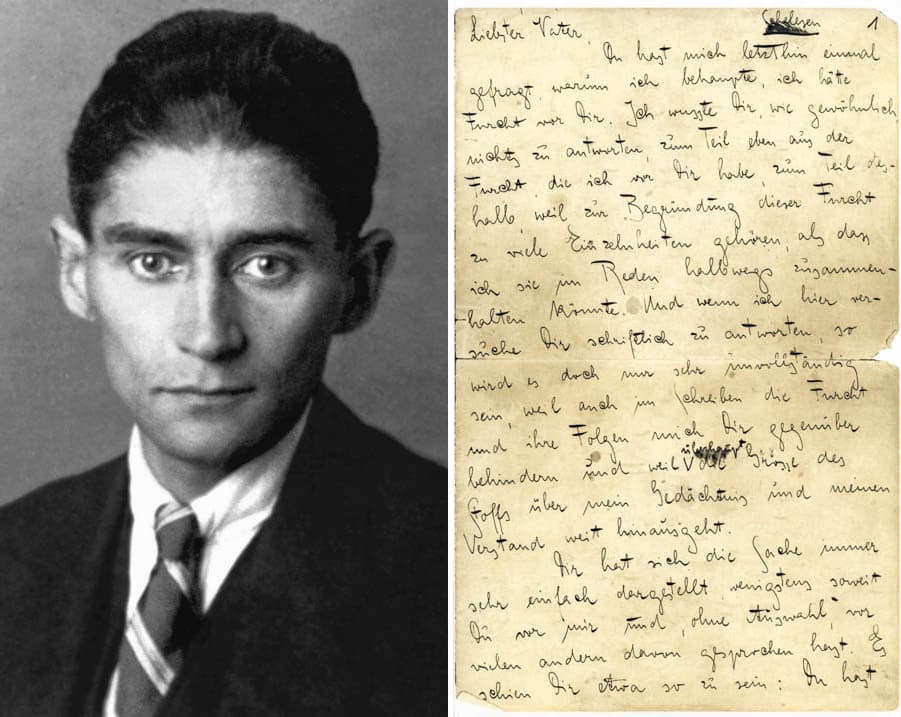 Schelesen
1
Liebster Vater,
Du hast mich letzthin einmal
gefragt, warum ich behaupte, ich hätte
Furcht vor Dir. Ich wusste Dir, wie gewöhnlich,
nichts zu antworten, zum Teil eben aus der
Furcht, die ich vor Dir habe, zum Teil des-
halb, weil zur Begründung dieser Furcht
zu viele Einzelnheiten gehören, als dass
ich sie im Reden halbwegs zusammen-
halten könnte. Und wenn ich hier ver-
suche Dir schriftlich zu antworten, so
wird es doch nur sehr unvollständig
sein, weil auch im Schreiben die Furcht
und ihre Folgen mich Dir gegenüber
behindern und weil überhaupt die Grösse des
Stoffs über mein Gedächtnis und meinen
Verstand weit hinausgeht.
Dir hat sich die Sache immer
sehr einfach dargestellt, wenigstens soweit
Du vor mir und, ohne Auswahl, vor
vielen andern davon gesprochen hast. Es
schien Dir etwa so zu sein: Du hast